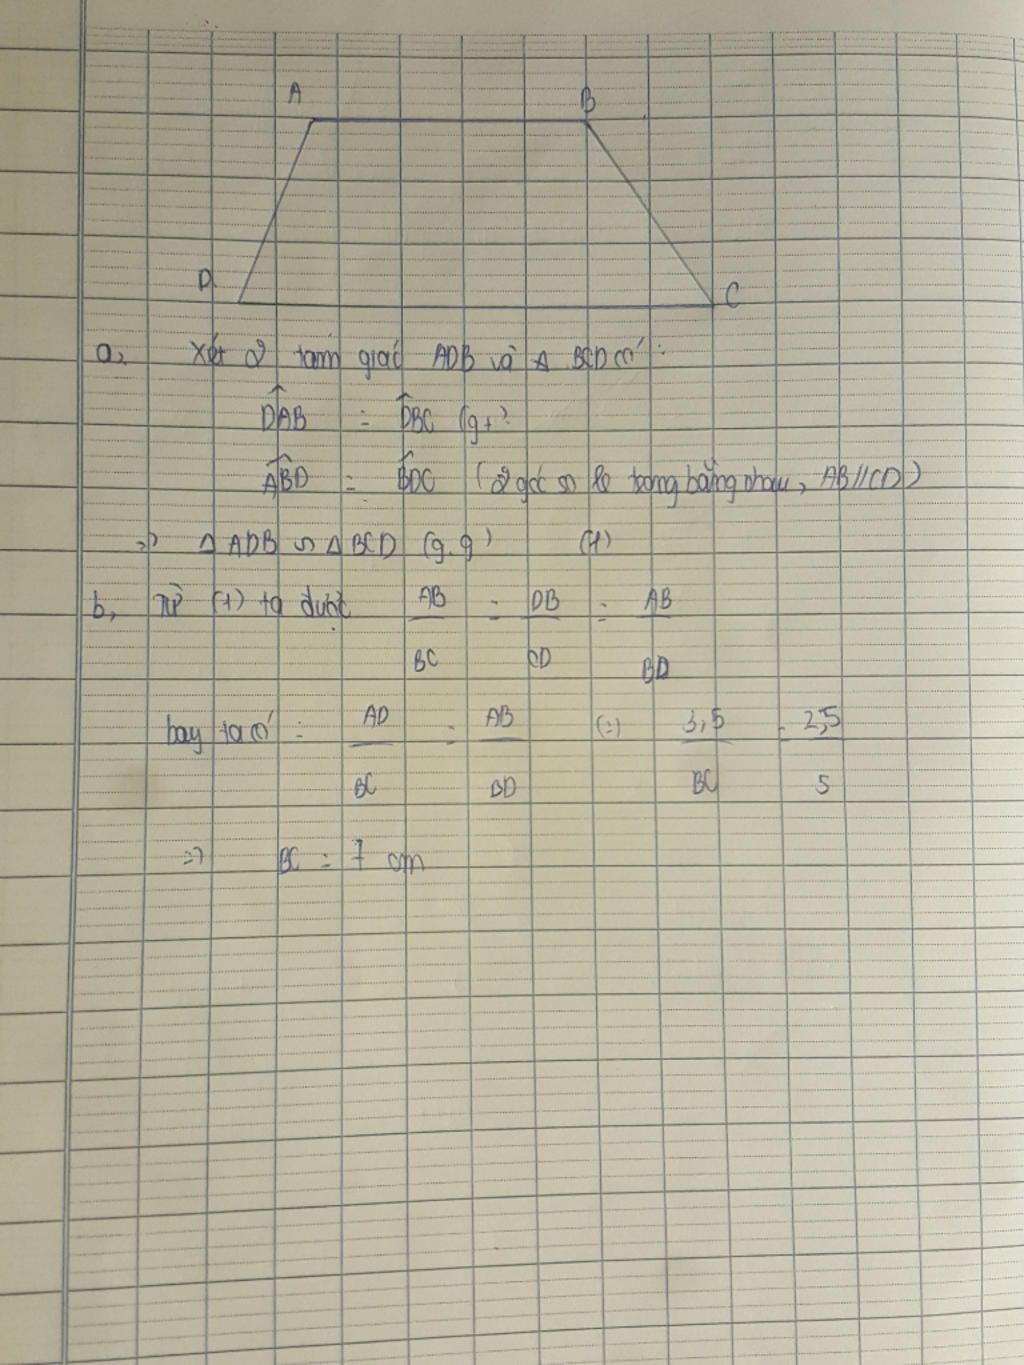 A B
D C
a, Xét 2 tam giác ADB và Δ BCD có :
DAB = DBC (gt)
ABD = BDC (2 góc so le trong bằng nhau, AB//CD)
=> Δ ADB ∽ Δ BCD (g.g) (1)
b, Từ (1) ta được AB/BC = DB/CD = AB/BD
hay ta có : AD/BC = AB/BD (=) 3,5/BC = 2,5/5
=> BC = 7 cm